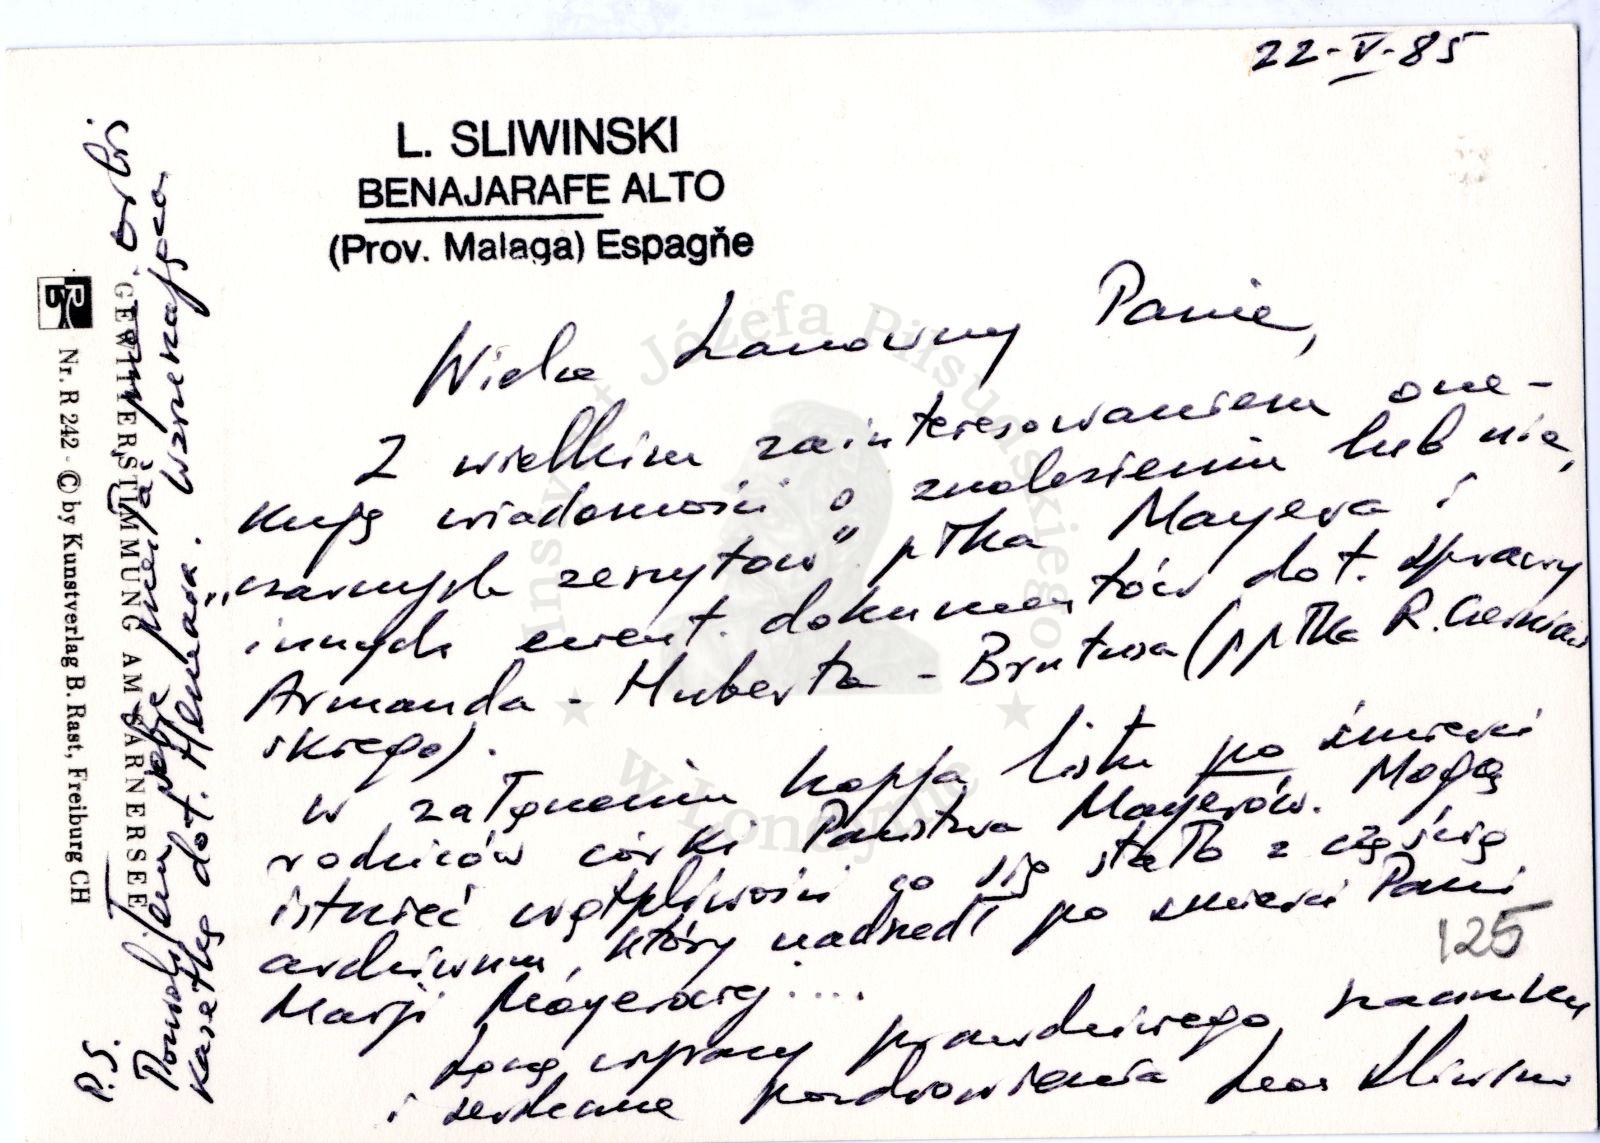 22-V-85
L. SLIWINSKI
BENAJARAFE ALTO
(Prov. Malaga) Espagňe
Wielce Szanowny Panie,
Z wielkim zainteresowaniem ocze-
kuję wiadomości o znalezieniu lub nie,
"czarnych zeszytów" płka Mayera i
innych ewent. dokumentów dot. sprawy
Armanda - Huberta - Brutusa (ppłka R. Czerniaw
skiego).
W załączeniu kopja listu po śmierci
rodziców córki Państwa Mayerów. Mogą
istnieć wątpliwości co się stało z częścią
archiwum, który nadszedł po śmierci Pani
Marji Mayerowej ....
Łączę wyrazy prawdziwego szacunku
i serdeczne pozdrowienia Leon Sliwinski
125
P.S.
Pozwoliłem sobie
kasetkę dot. Wzruszająca
Instytut Józefa Piłsudskiego
w Londynie
GEWITTERSTIMMUNG AM SARNERSEE
Nr. R 242 - © by Kunstverlag B. Rast, Freiburg CH
RB